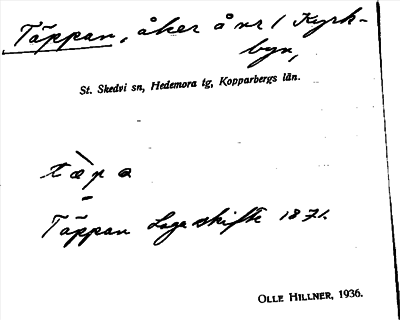 Täppan, åker å nr 1 Kyrk-
byn,
St. Skedvi sn, Hedemora tg, Kopparbergs län.
tæpa
Täppan Laga skifte 1871.
OLLE HILLNER, 1936.